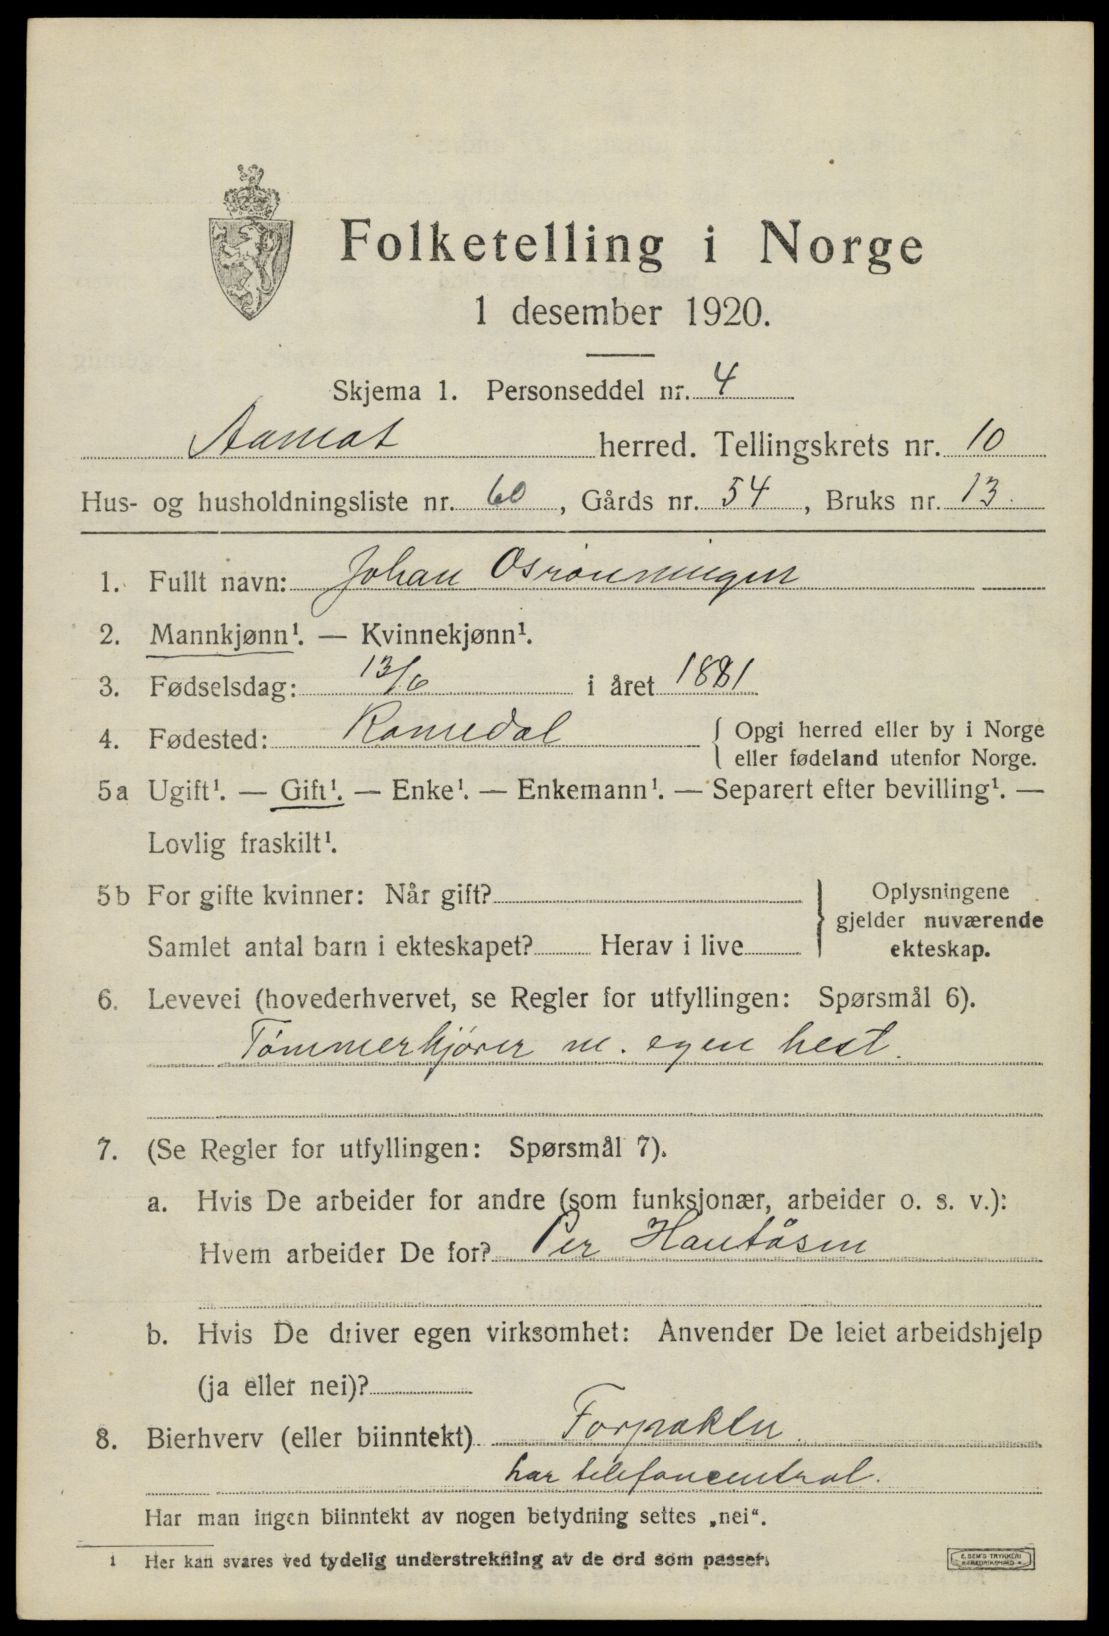 Folketelling i Norge
1 desember 1920.
Skjema 1. Personseddel nr. 4
Aamot herred. Tellingskrets nr. 10
Hus- og husholdningsliste nr. 60, Gårds nr. 54, Bruks nr. 13.
1. Fullt navn: Johan Osrønningen
2. Mannkjønn¹. — Kvinnekjønn¹.
3. Fødselsdag: 13/6 i året 1881
4. Fødested: Romedal { Opgi herred eller by i Norge
eller fødeland utenfor Norge.
5a Ugift¹. — Gift¹. — Enke¹. — Enkemann¹. — Separert efter bevilling¹. —
Lovlig fraskilt¹.
5b For gifte kvinner: Når gift?
Samlet antal barn i ekteskapet? Herav i live
} Oplysningene
gjelder nuværende
ekteskap.
6. Levevei (hovederhvervet, se Regler for utfyllingen: Spørsmål 6).
Tømmerkjører m. egen hest.
7. (Se Regler for utfyllingen: Spørsmål 7).
a. Hvis De arbeider for andre (som funksjonær, arbeider o. s. v.):
Hvem arbeider De for? Per Hautåsen
b. Hvis De driver egen virksomhet: Anvender De leiet arbeidshjelp
(ja eller nei)?
8. Bierhverv (eller biinntekt) Forpakter
har telefoncentral.
Har man ingen biinntekt av nogen betydning settes „nei“.
1 Her kan svares ved tydelig understrekning av de ord som passer.